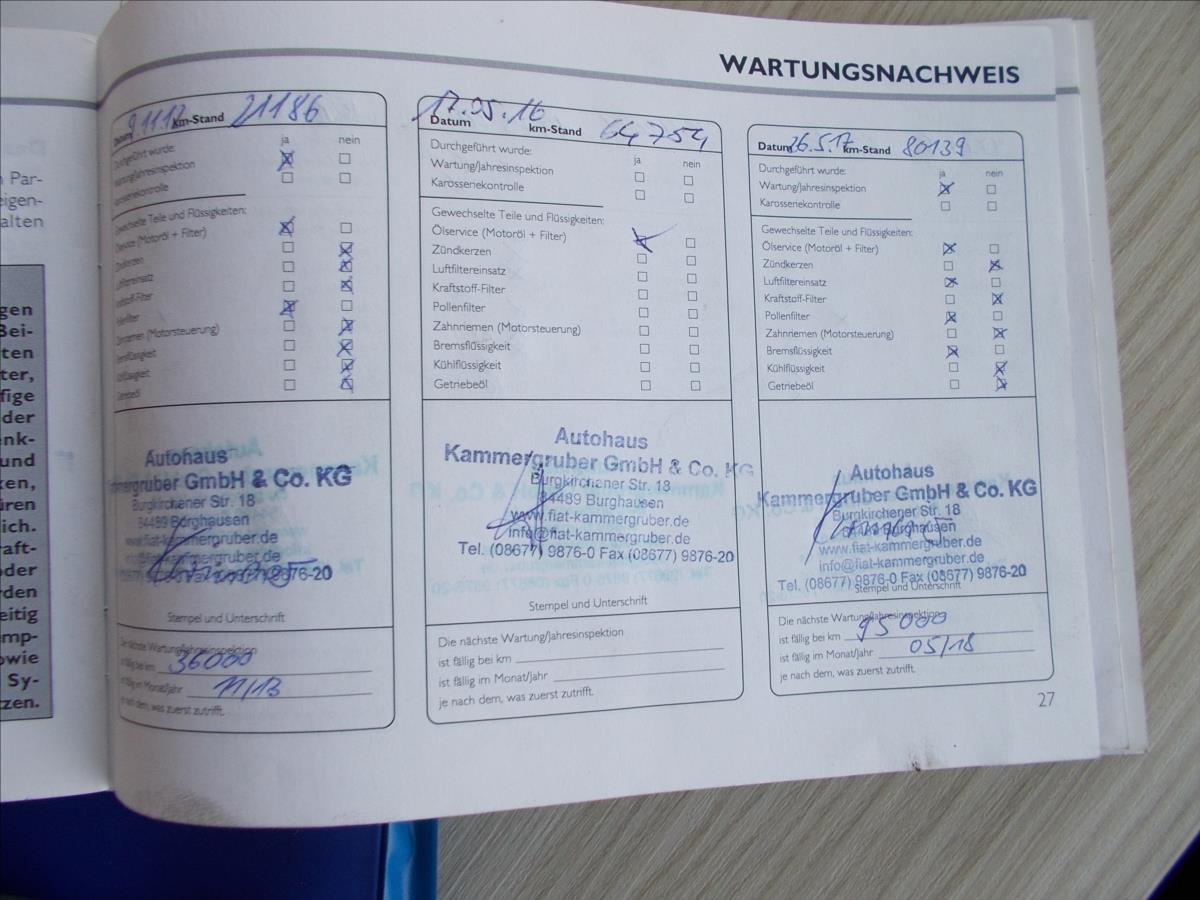 WARTUNGSNACHWEIS
n Par-
eigen-
alten
gen
Bei-
ten
ter,
fige
der
nk-
und
ken,
üren
ich.
raft-
oder
rden
eitig
mp-
owie
Sy-
zen.
Datum km-Stand 21186
ja nein
Durchgeführt wurde:
Wartung/Jahresinspektion
Karosseriekontrolle
Gewechselte Teile und Flüssigkeiten:
Ölservice (Motoröl + Filter)
Zündkerzen
Luftfiltereinsatz
Kraftstoff-Filter
Pollenfilter
Zahnriemen (Motorsteuerung)
Bremsflüssigkeit
Kühlflüssigkeit
Getriebeöl
Autohaus
mmergruber GmbH & Co. KG
Burgkirchener Str. 18
84489 Burghausen
www.fiat-kammergruber.de
info@fiat-kammergruber.de
9876-20
Stempel und Unterschrift
Die nächste Wartung/Jahresinspektion
ist fällig bei km 36000
ist fällig im Monat/Jahr 11/13
je nach dem, was zuerst zutrifft.
Datum 17.05.16 km-Stand 64754
Durchgeführt wurde: ja nein
Wartung/Jahresinspektion
Karosseriekontrolle
Gewechselte Teile und Flüssigkeiten:
Ölservice (Motoröl + Filter)
Zündkerzen
Luftfiltereinsatz
Kraftstoff-Filter
Pollenfilter
Zahnriemen (Motorsteuerung)
Bremsflüssigkeit
Kühlflüssigkeit
Getriebeöl
Autohaus
Kammergruber GmbH & Co. KG
Burgkirchener Str. 18
84489 Burghausen
www.fiat-kammergruber.de
info@fiat-kammergruber.de
Tel. (08677) 9876-0 Fax (08677) 9876-20
Stempel und Unterschrift
Die nächste Wartung/Jahresinspektion
ist fällig bei km
ist fällig im Monat/Jahr
je nach dem, was zuerst zutrifft.
Datum 26.5.17 km-Stand 80139
Durchgeführt wurde: ja nein
Wartung/Jahresinspektion
Karosseriekontrolle
Gewechselte Teile und Flüssigkeiten:
Ölservice (Motoröl + Filter)
Zündkerzen
Luftfiltereinsatz
Kraftstoff-Filter
Pollenfilter
Zahnriemen (Motorsteuerung)
Bremsflüssigkeit
Kühlflüssigkeit
Getriebeöl
Autohaus
Kammergruber GmbH & Co. KG
Burgkirchener Str. 18
84489 Burghausen
www.fiat-kammergruber.de
info@fiat-kammergruber.de
Tel. (08677) 9876-0 Fax (08677) 9876-20
Stempel und Unterschrift
Die nächste Wartung/Jahresinspektion
ist fällig bei km 95000
ist fällig im Monat/Jahr 05/18
je nach dem, was zuerst zutrifft.
27